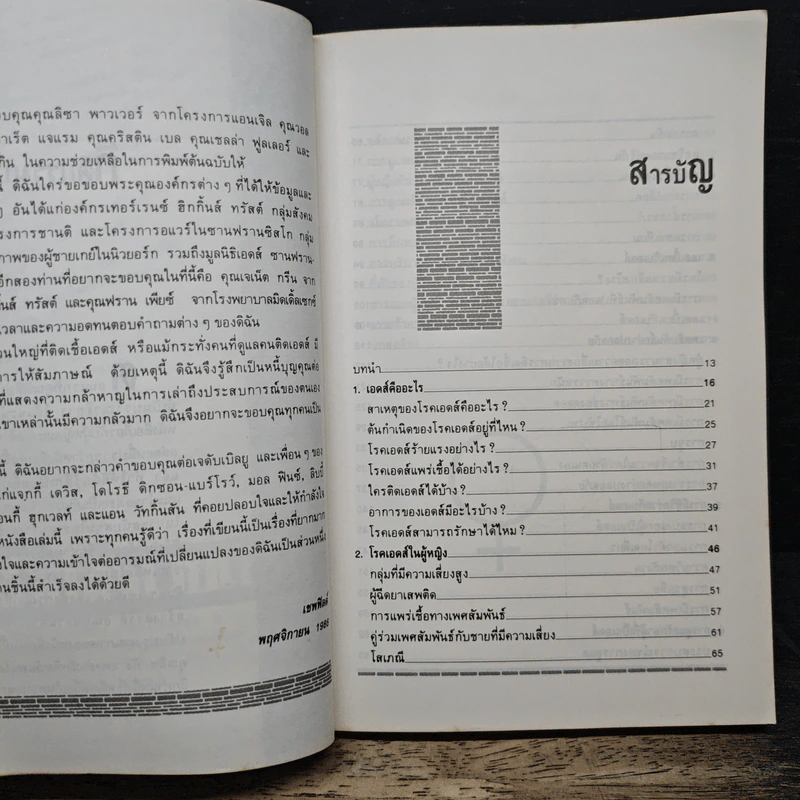 บคุณคุณลิซา พาวเวอร์ จากโครงการแอนเจิล คุณวอล
าเร็ต แจแรม คุณคริสติน เบล คุณเชลล่า ฟูลเลอร์ และ
กิน ในความช่วยเหลือในการพิมพ์ต้นฉบับให้
นี้ ดิฉันใคร่ขอขอบพระคุณองค์กรต่าง ๆ ที่ได้ให้ข้อมูลและ
อันได้แก่องค์กรเทอร์เรนซ์ ฮิกกิ้นส์ ทรัสต์ กลุ่มสังคม
รงการชานติ และโครงการอแวร์ในซานฟรานซิสโก กลุ่ม
ภาพของผู้ชายเกย์ในนิวยอร์ก รวมถึงมูลนิธิเอดส์ ซานฟราน-
อีกสองท่านที่อยากจะขอบคุณในที่นี้คือ คุณเจเน็ต กรีน จาก
กิ้นส์ ทรัสต์ และคุณฟราน เพียซ์ จากโรงพยาบาลมิดเดิ้ลเซกซ์
เวลาและความอดทนตอบคำถามต่าง ๆ ของดิฉัน
วนใหญ่ที่ติดเชื้อเอดส์ หรือแม้กระทั่งคนที่ดูแลคนติดเอดส์ มี
การให้สัมภาษณ์ ด้วยเหตุนี้ ดิฉันจึงรู้สึกเป็นหนี้บุญคุณต่อ
ที่แสดงความกล้าหาญในการเล่าถึงประสบการณ์ของตนเอง
ขาเหล่านั้นมีความกลัวมาก ดิฉันจึงอยากจะขอบคุณทุกคนเป็น
นี้ ดิฉันอยากจะกล่าวคำขอบคุณต่อเจดับเบิลยู และเพื่อน ๆ ของ
ก่แจุกกี้ เดวิส, โดโรธี ดิกซอน-แบร์โรว์, มอล ฟินซ์, ลิบบี้
อนกี้ ฮุกเวลท์ และแอน วัทกิ้นสัน ที่คอยปลอบใจและให้กำลังใจ
หนังสือเล่มนี้ เพราะทุกคนรู้ดีว่า เรื่องที่เขียนนี้เป็นเรื่องที่ยากมาก
งใจและความเข้าใจต่ออารมณ์ที่เปลี่ยนแปลงของดิฉันเป็นส่วนหนึ่ง
านชิ้นนี้สำเร็จลงได้ด้วยดี
เชฟฟิลด์
พฤศจิกายน 1986
สารบัญ
บทนำ 13
1. เอดส์คืออะไร 16
สาเหตุของโรคเอดส์คืออะไร ? 21
ต้นกำเนิดของโรคเอดส์อยู่ที่ไหน ? 25
โรคเอดส์ร้ายแรงอย่างไร ? 27
โรคเอดส์แพร่เชื้อได้อย่างไร ? 31
ใครติดเอดส์ได้บ้าง ? 37
อาการของเอดส์มีอะไรบ้าง ? 39
โรคเอดส์สามารถรักษาได้ไหม ? 41
2. โรคเอดส์ในผู้หญิง 46
กลุ่มที่มีความเสี่ยงสูง 47
ผู้ฉีดยาเสพติด 51
การแพร่เชื้อทางเพศสัมพันธ์ 57
คู่ร่วมเพศสัมพันธ์กับชายที่มีความเสี่ยง 61
โสเภณี 65